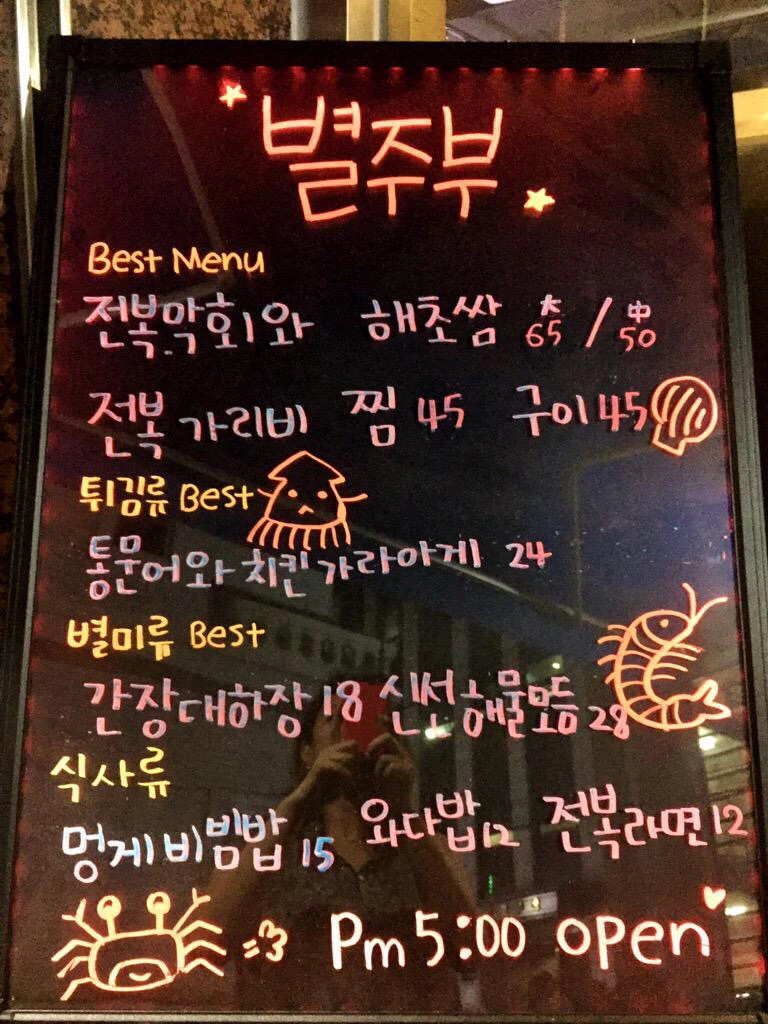 별주부
Best Menu
전복막회와 해초쌈 大 65 / 中 50
전복 가리비 찜 45 구이 45
튀김류 Best
통문어와 치킨 가라아게 24
별미류 Best
간장대하장 18 신선해물모듬 28
식사류
멍게비빔밥 15 와다밥 12 전복라면 12
Pm 5:00 open